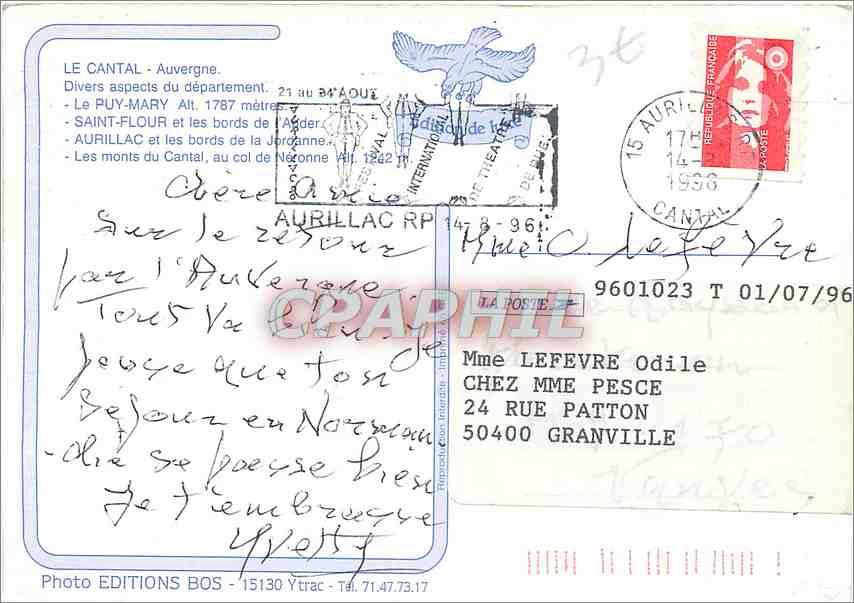 3€
LE CANTAL - Auvergne.
Divers aspects du département.
- Le PUY-MARY Alt. 1787 mètres.
- SAINT-FLOUR et les bords de l'Ander.
- AURILLAC et les bords de la Jordanne.
- Les monts du Cantal, au col de Néronne Alt. 1242 m.
21 au 24 AOUT
FESTIVAL
INTERNATIONAL
DE THEATRE
DE RUE
Edition de luxe
AURILLAC RP 14-8-96
15 AURILLAC R.P.
17H
14-8
1996
CANTAL
REPUBLIQUE FRANÇAISE
LA POSTE
Chère Amie
Sur le retour
par l'Auvergne
Tout va bien je
pense que ton
séjour en Norman
-die se passe bien
Je t'embrasse
Yvette
Mme O Lefèvre
LA POSTE
9601023 T 01/07/96
Mme LEFEVRE Odile
CHEZ MME PESCE
24 RUE PATTON
50400 GRANVILLE
Vanves
CPAPHIL
Reproduction Interdite - Imprimé
Photo EDITIONS BOS - 15130 Ytrac - Tél. 71.47.73.17